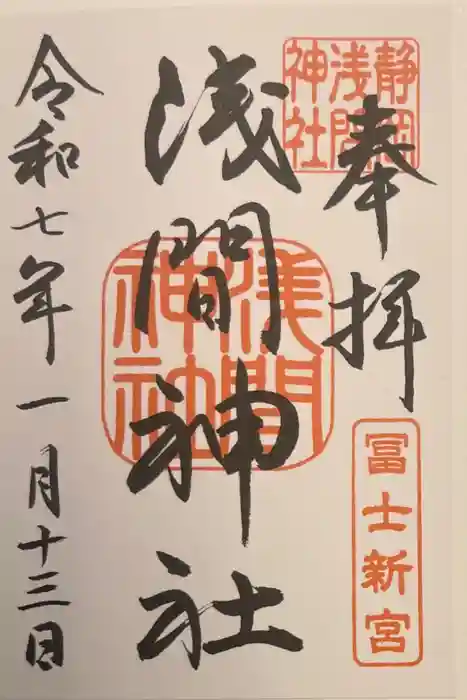 奉拝
静岡
浅間
神社
冨士新宮
浅間神社
浅間
神社
令和七年一月十三日